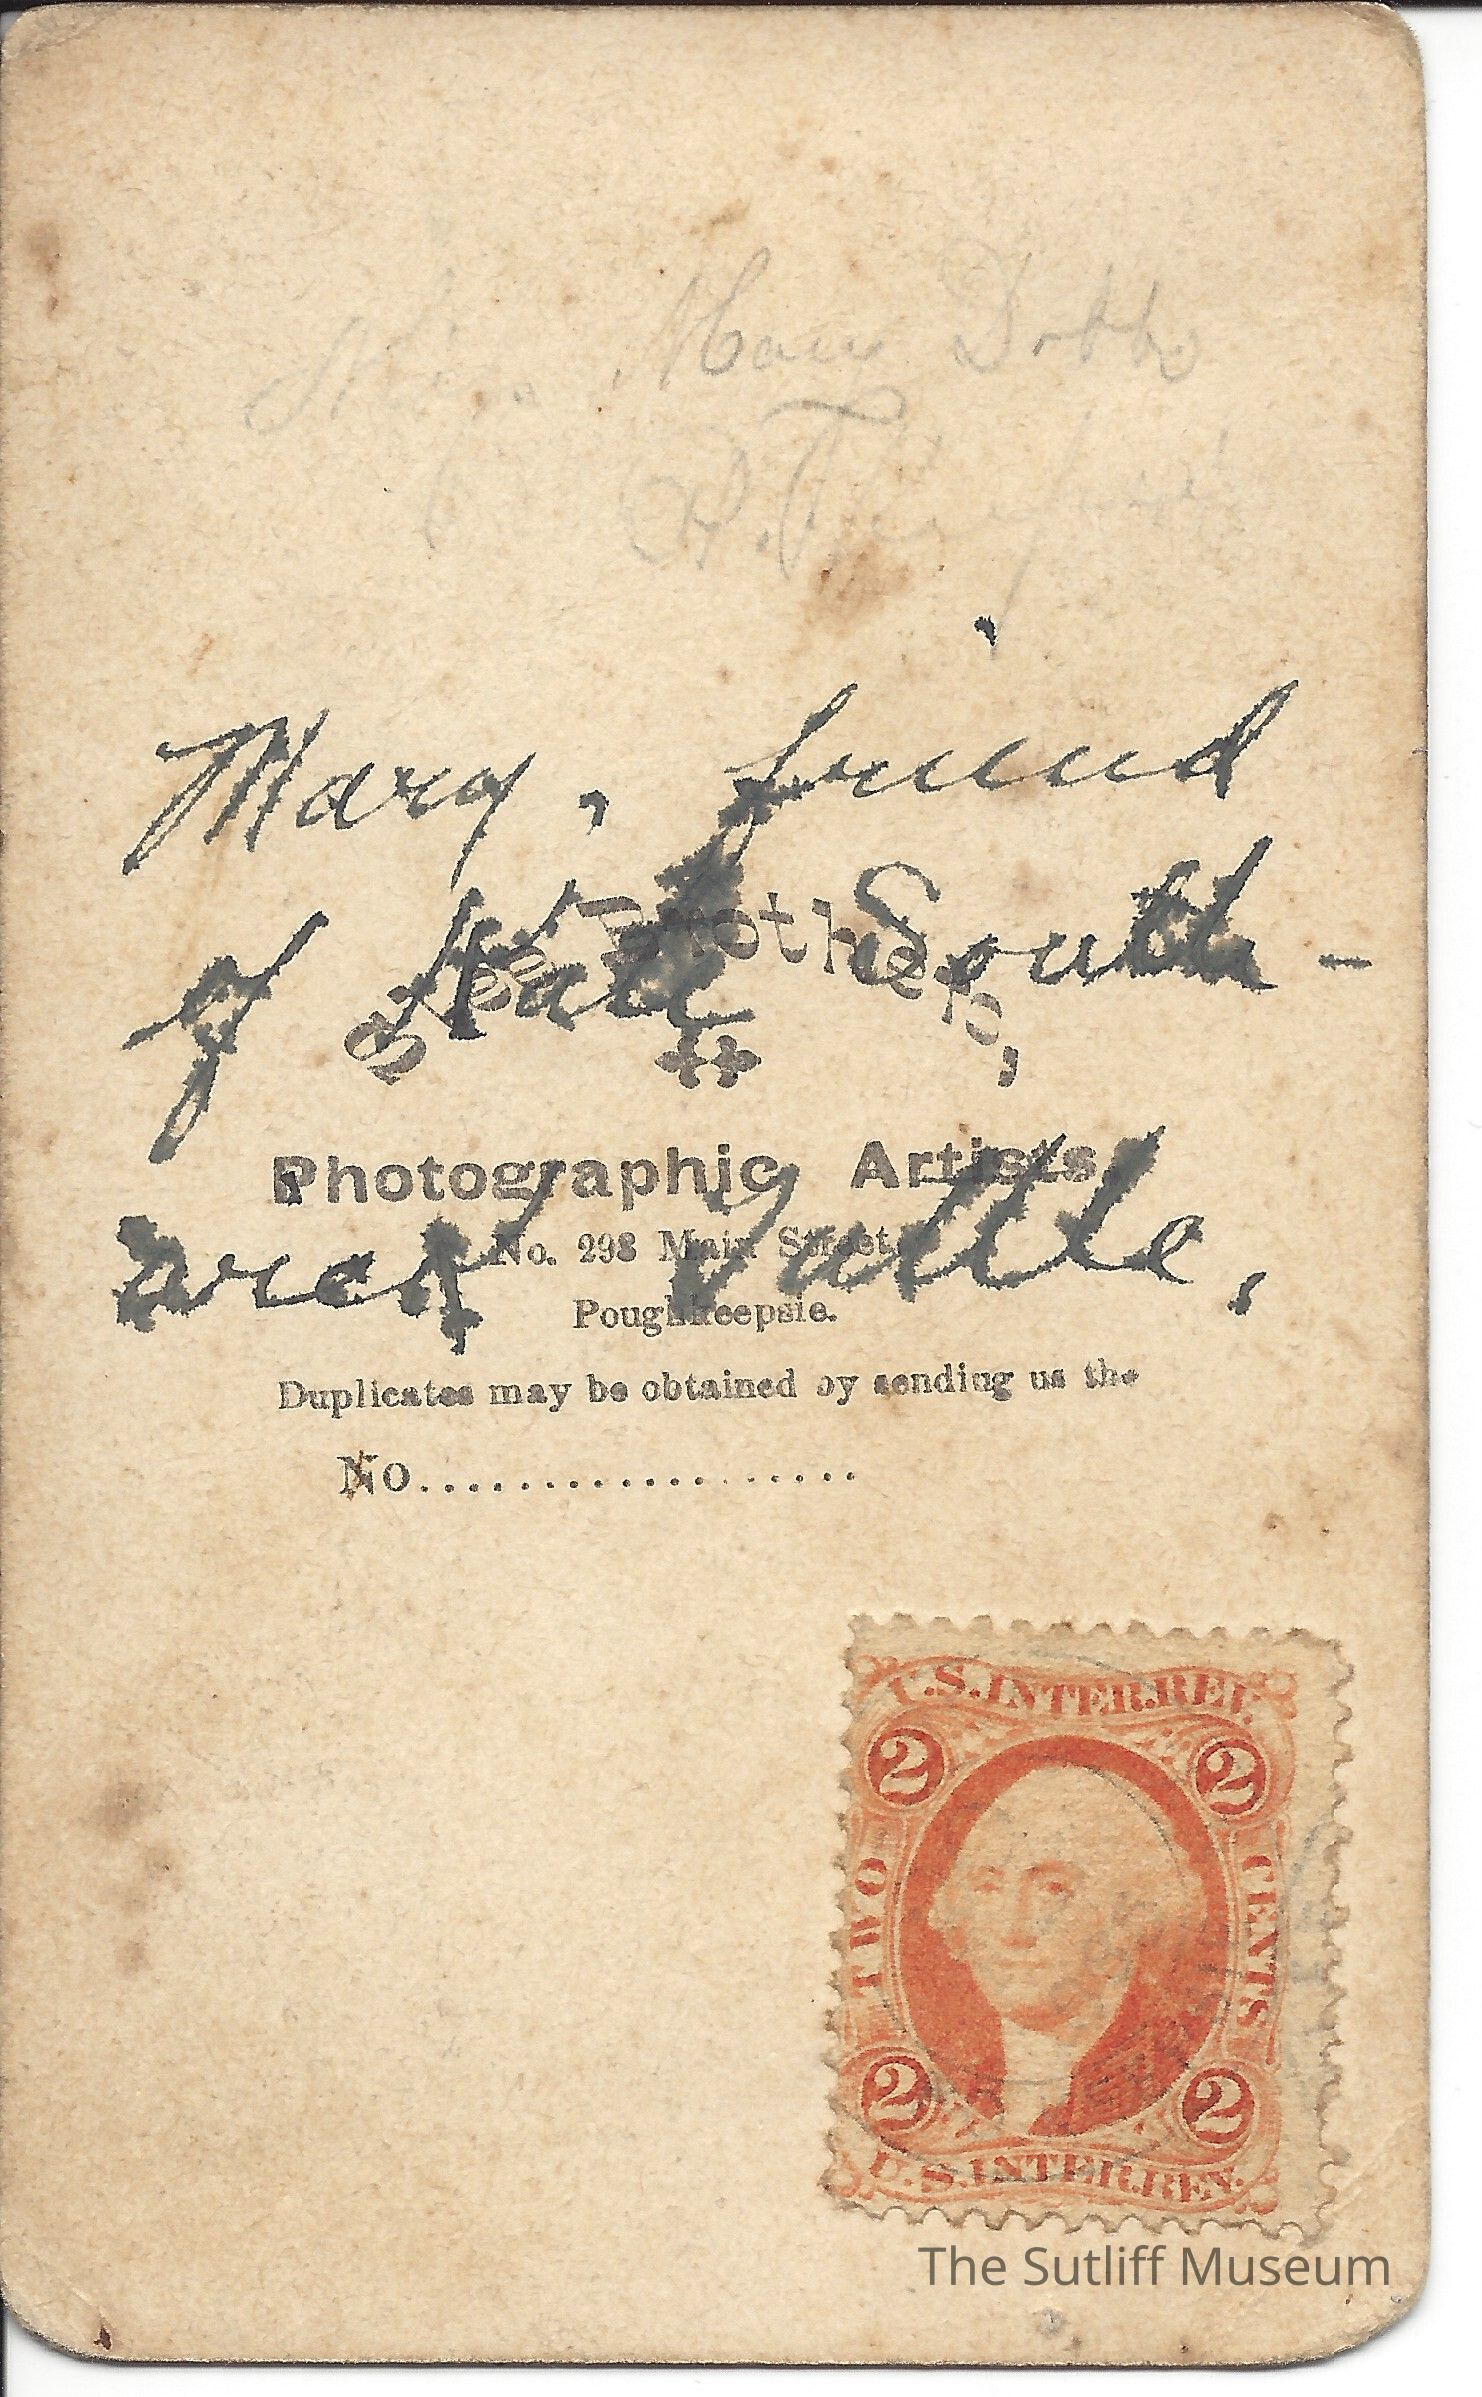 Mary Dobbs
Mary, friend
of Kate South-
Brothers,
Photographic Artists,
wick Tuttle,
No. 298 Main Street
Poughkeepsie.
Duplicates may be obtained by sending us the
No....................
U.S. INTER. REV.
2 2
TWO CENTS
2 2
U.S. INTER. REV.
The Sutliff Museum